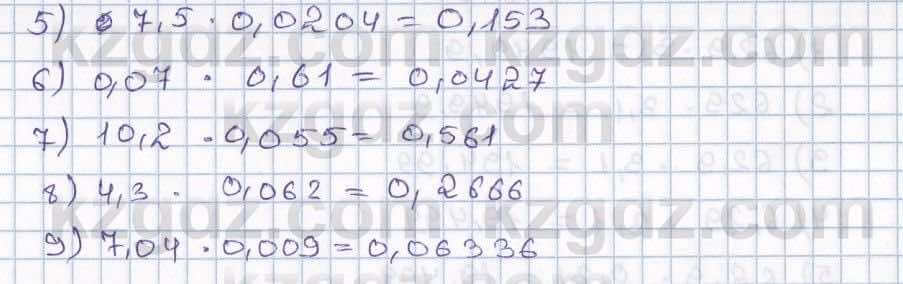 5) 7,5 · 0,0204 = 0,153
6) 0,07 · 0,61 = 0,0427
7) 10,2 · 0,055 = 0,561
8) 4,3 · 0,062 = 0,2666
9) 7,04 · 0,009 = 0,06336
kzgdz.com kzgdz.com
kzgdz.com
kzgdz.com kzgdz.com